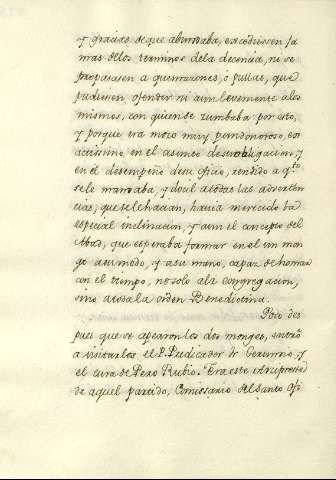 y gracias de que abundaba, excediessen ja
mas de los terminos de la decencia, ni se
propasasen a quemazones, ó pullas, que
pudiesen ofender ni aun levemente a los
mismos, con quienes se zumbaba: por esto,
y porque era mozo muy pundonoroso, ex
actissimo en el asimco desu obligacion, y
en el desempeño de su oficio, rendido a qto
se le mandaba, y docil a todas las adverten
cias, que se le hacian, havia merecido la
especial inclinacion, y aun el concepto del
Abad, que esperaba formar en el un mon
ge a su modo, y a su mano, capaz de honrar
con el tiempo, no solo a la congregacion,
sino a toda la orden Benedictina.
Poco des
pues que se apearon los dos monges, entró
a visitarlos el P. Predicador Fr Gerundio, y
el cura de Pero Rubio. Era este Arcipreste
de aquel partido, Comissario del Santo Ofi